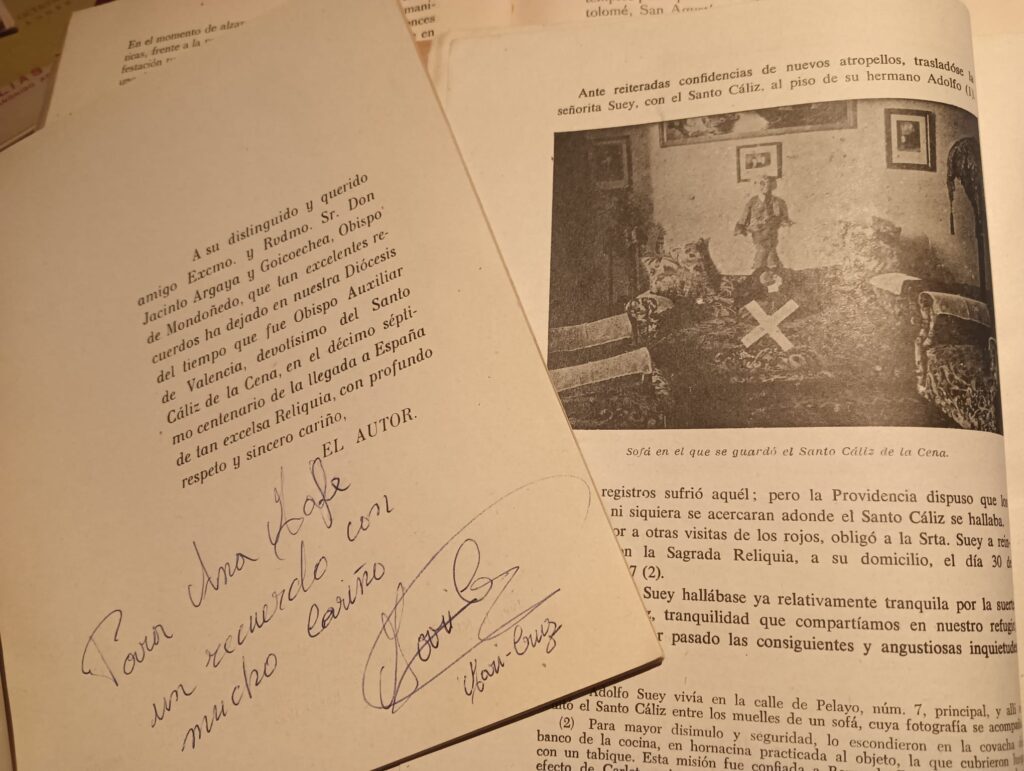 En el momento de alza
ticas, frente a la
festación
A su distinguido y querido
amigo Excmo. y Rvdmo. Sr. Don
Jacinto Argaya y Goicoechea, Obispo
de Mondoñedo, que tan excelentes re-
cuerdos ha dejado en nuestra Diócesis
del tiempo que fue Obispo Auxiliar
de Valencia, devotísimo del Santo
Cáliz de la Cena, en el décimo sépti-
mo centenario de la llegada a España
de tan excelsa Reliquia, con profundo
respeto y sincero cariño,
EL AUTOR.
Para Ana
un recuerdo con
mucho cariño
Mari-Cruz
mani-
onces
en
tolomé, San
Ante reiteradas confidencias de nuevos atropellos, trasladóse la
señorita Suey, con el Santo Cáliz, al piso de su hermano Adolfo (1)
Sofá en el que se guardó el Santo Cáliz de la Cena.
registros sufrió aquél; pero la Providencia dispuso que los
ni siquiera se acercaran adonde el Santo Cáliz se hallaba.
or a otras visitas de los rojos, obligó a la Srta. Suey a rein
on la Sagrada Reliquia, a su domicilio, el día 30 de
7 (2).
Suey hallábase ya relativamente tranquila por la suerte
z, tranquilidad que compartíamos en nuestro refugio
r pasado las consiguientes y angustiosas inquietude
Adolfo Suey vivía en la calle de Pelayo, núm. 7, principal, y allí
el Santo Cáliz entre los muelles de un sofá, cuya fotografía se acompaña
(2) Para mayor disimulo y seguridad, lo escondieron en la covacha
banco de la cocina, en hornacina practicada al objeto, la que cubrieron
con un tabique. Esta misión fue confiada a
efecto de